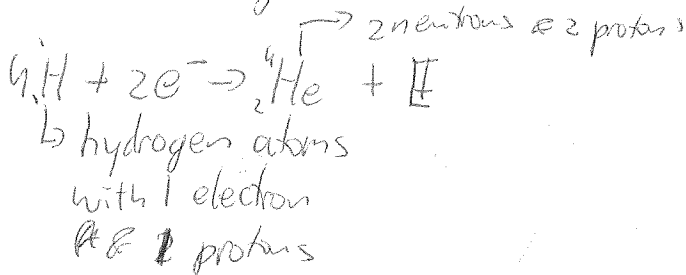 2 neutrons & 2 protons
4 ¹₁H + 2e⁻ → ⁴₂He + E
↳ hydrogen atoms
with 1 electron
& 1 protons